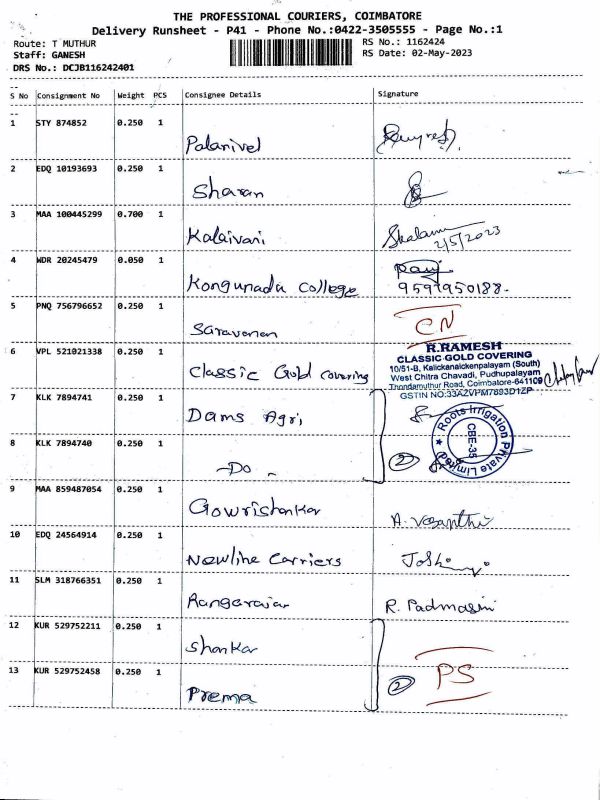 THE PROFESSIONAL COURIERS, COIMBATORE
Delivery Runsheet - P41 - Phone No.:0422-3505555 - Page No.:1
Route: T MUTHUR RS No.: 1162424
Staff: GANESH RS Date: 02-May-2023
DRS No.: DCJB116242401
S No Consignment No Weight PCS Consignee Details Signature
1 STY 874852 0.250 1 Palanivel
2 EDQ 10193693 0.250 1 Sharan
3 MAA 100445299 0.700 1 Kalaivani 2/5/2023
4 WDR 20245479 0.050 1 Kongunadu college
5 PNQ 756796652 0.250 1 Saravanan CN
6 VPL 521021338 0.250 1 Classic Gold covering
R.RAMESH
CLASSIC GOLD COVERING
10/51-B, Kalickanaickenpalayam (South)
West Chitra Chavadi, Pudhupalayam
Thondamuthur Road, Coimbatore-641109
GSTIN NO:33AZVPM7893D1ZP
7 KLK 7894741 0.250 1 Dams Agri,
8 KLK 7894740 0.250 1 -Do- 2
Roots Irrigation Private Limited
CBE-35
9 MAA 859487054 0.250 1 Gowrishankar A. Vasanthi
10 EDQ 24564914 0.250 1 Newline Carriers
11 SLM 318766351 0.250 1 Rangarajan R. Padmasini
12 KUR 529752211 0.250 1 Shankar
13 KUR 529752458 0.250 1 Prema 2 PS